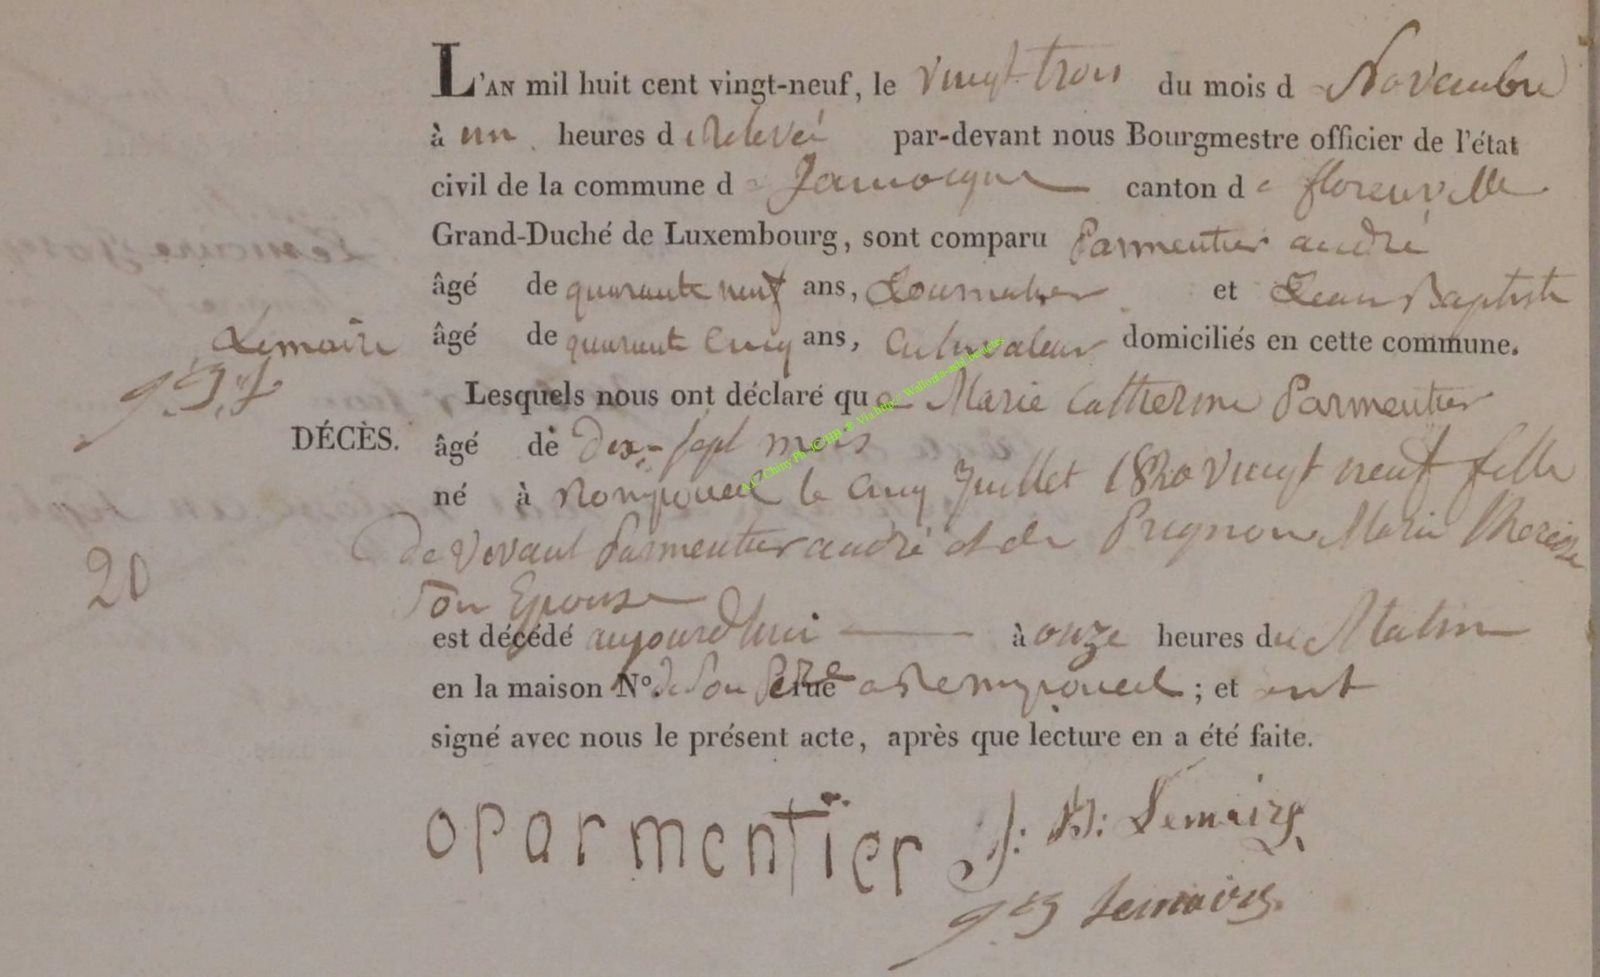 L'AN mil huit cent vingt-neuf, le vingt trois du mois de Novembre
à un heures de Relevé par-devant nous Bourgmestre officier de l'état
civil de la commune de Jamoigne canton de florenville
Grand-Duché de Luxembourg, sont comparu Parmentier andré
âgé de quarante neuf ans, Journalier et Jean Baptiste
Lemaire âgé de quarante cinq ans, Cultivateur domiciliés en cette commune.
Lesquels nous ont déclaré que Marie Catherine Parmentier
DÉCÈS. âgé de dix-sept mois
né à Romponcel le cinq Juillet 18 vingt neuf fille
20 de Parmentier andré et de Prignon Marie Therese
son Epouse
est décédé aujourd'hui à onze heures du Matin
en la maison N°. de son Père rue a Romponcel ; et ont
signé avec nous le présent acte, après que lecture en a été faite.
a Parmentier J: B: Lemaire
Lemaire